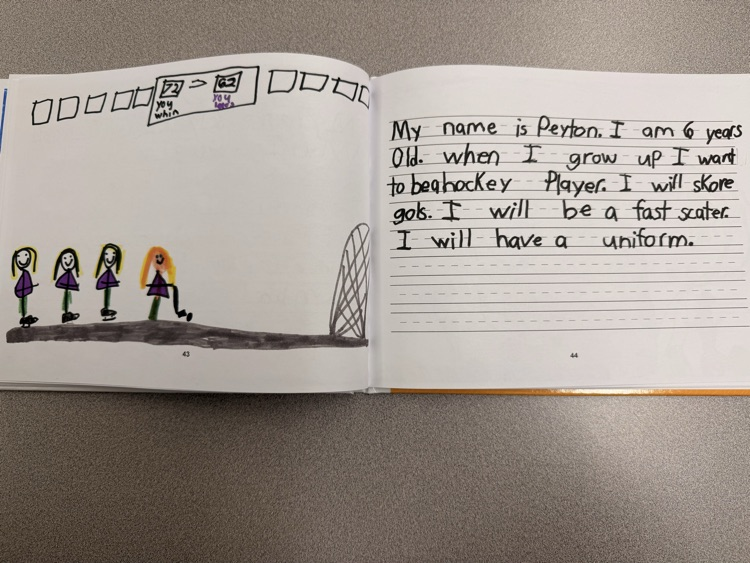 72 > 62
you you
whin loose
43
My name is Peyton. I am 6 years
Old. when I grow up I want
to be a hockey Player. I will skore
gols. I will be a fast scater.
I will have a uniform.
44